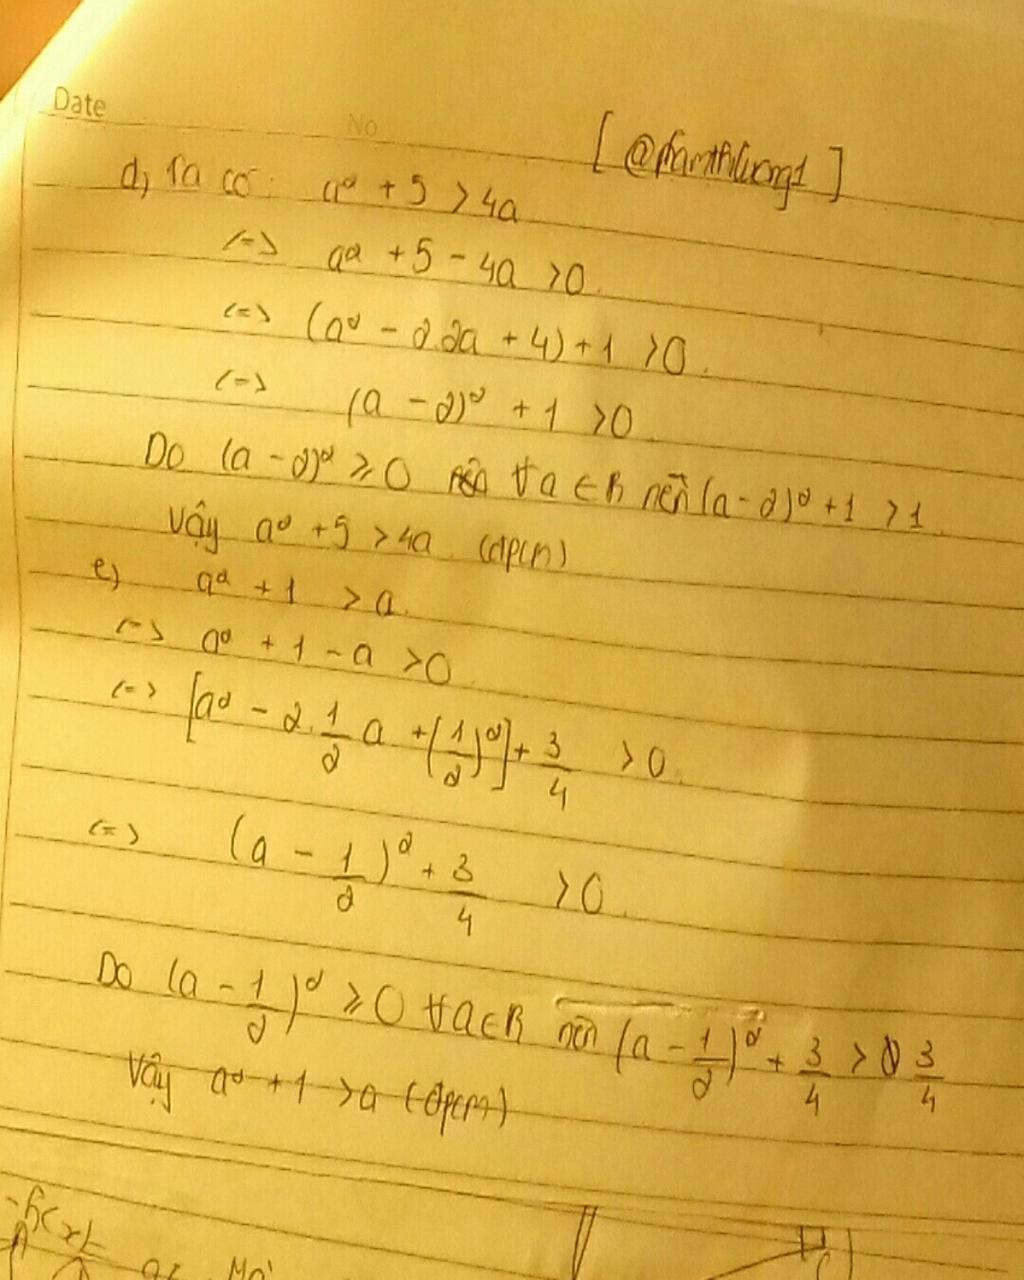 Date
No
[ @phamthiluong1 ]
d, Ta có: a² + 5 > 4a
<=> a² + 5 - 4a > 0.
<=> (a² - 2.2a + 4) + 1 > 0.
<=> (a - 2)² + 1 > 0.
Do (a - 2)² ≥ 0 ∀a ∈ R nên (a - 2)² + 1 > 1
Vậy a² + 5 > 4a (đpcm)
e) a² + 1 > a.
<=> a² + 1 - a > 0
<=> [a² - 2.1/2 a + (1/2)²] + 3/4 > 0.
<=> (a - 1/2)² + 3/4 > 0.
Do (a - 1/2)² ≥ 0 ∀a ∈ R nên (a - 1/2)² + 3/4 > 3/4
Vậy a² + 1 > a (đpcm)